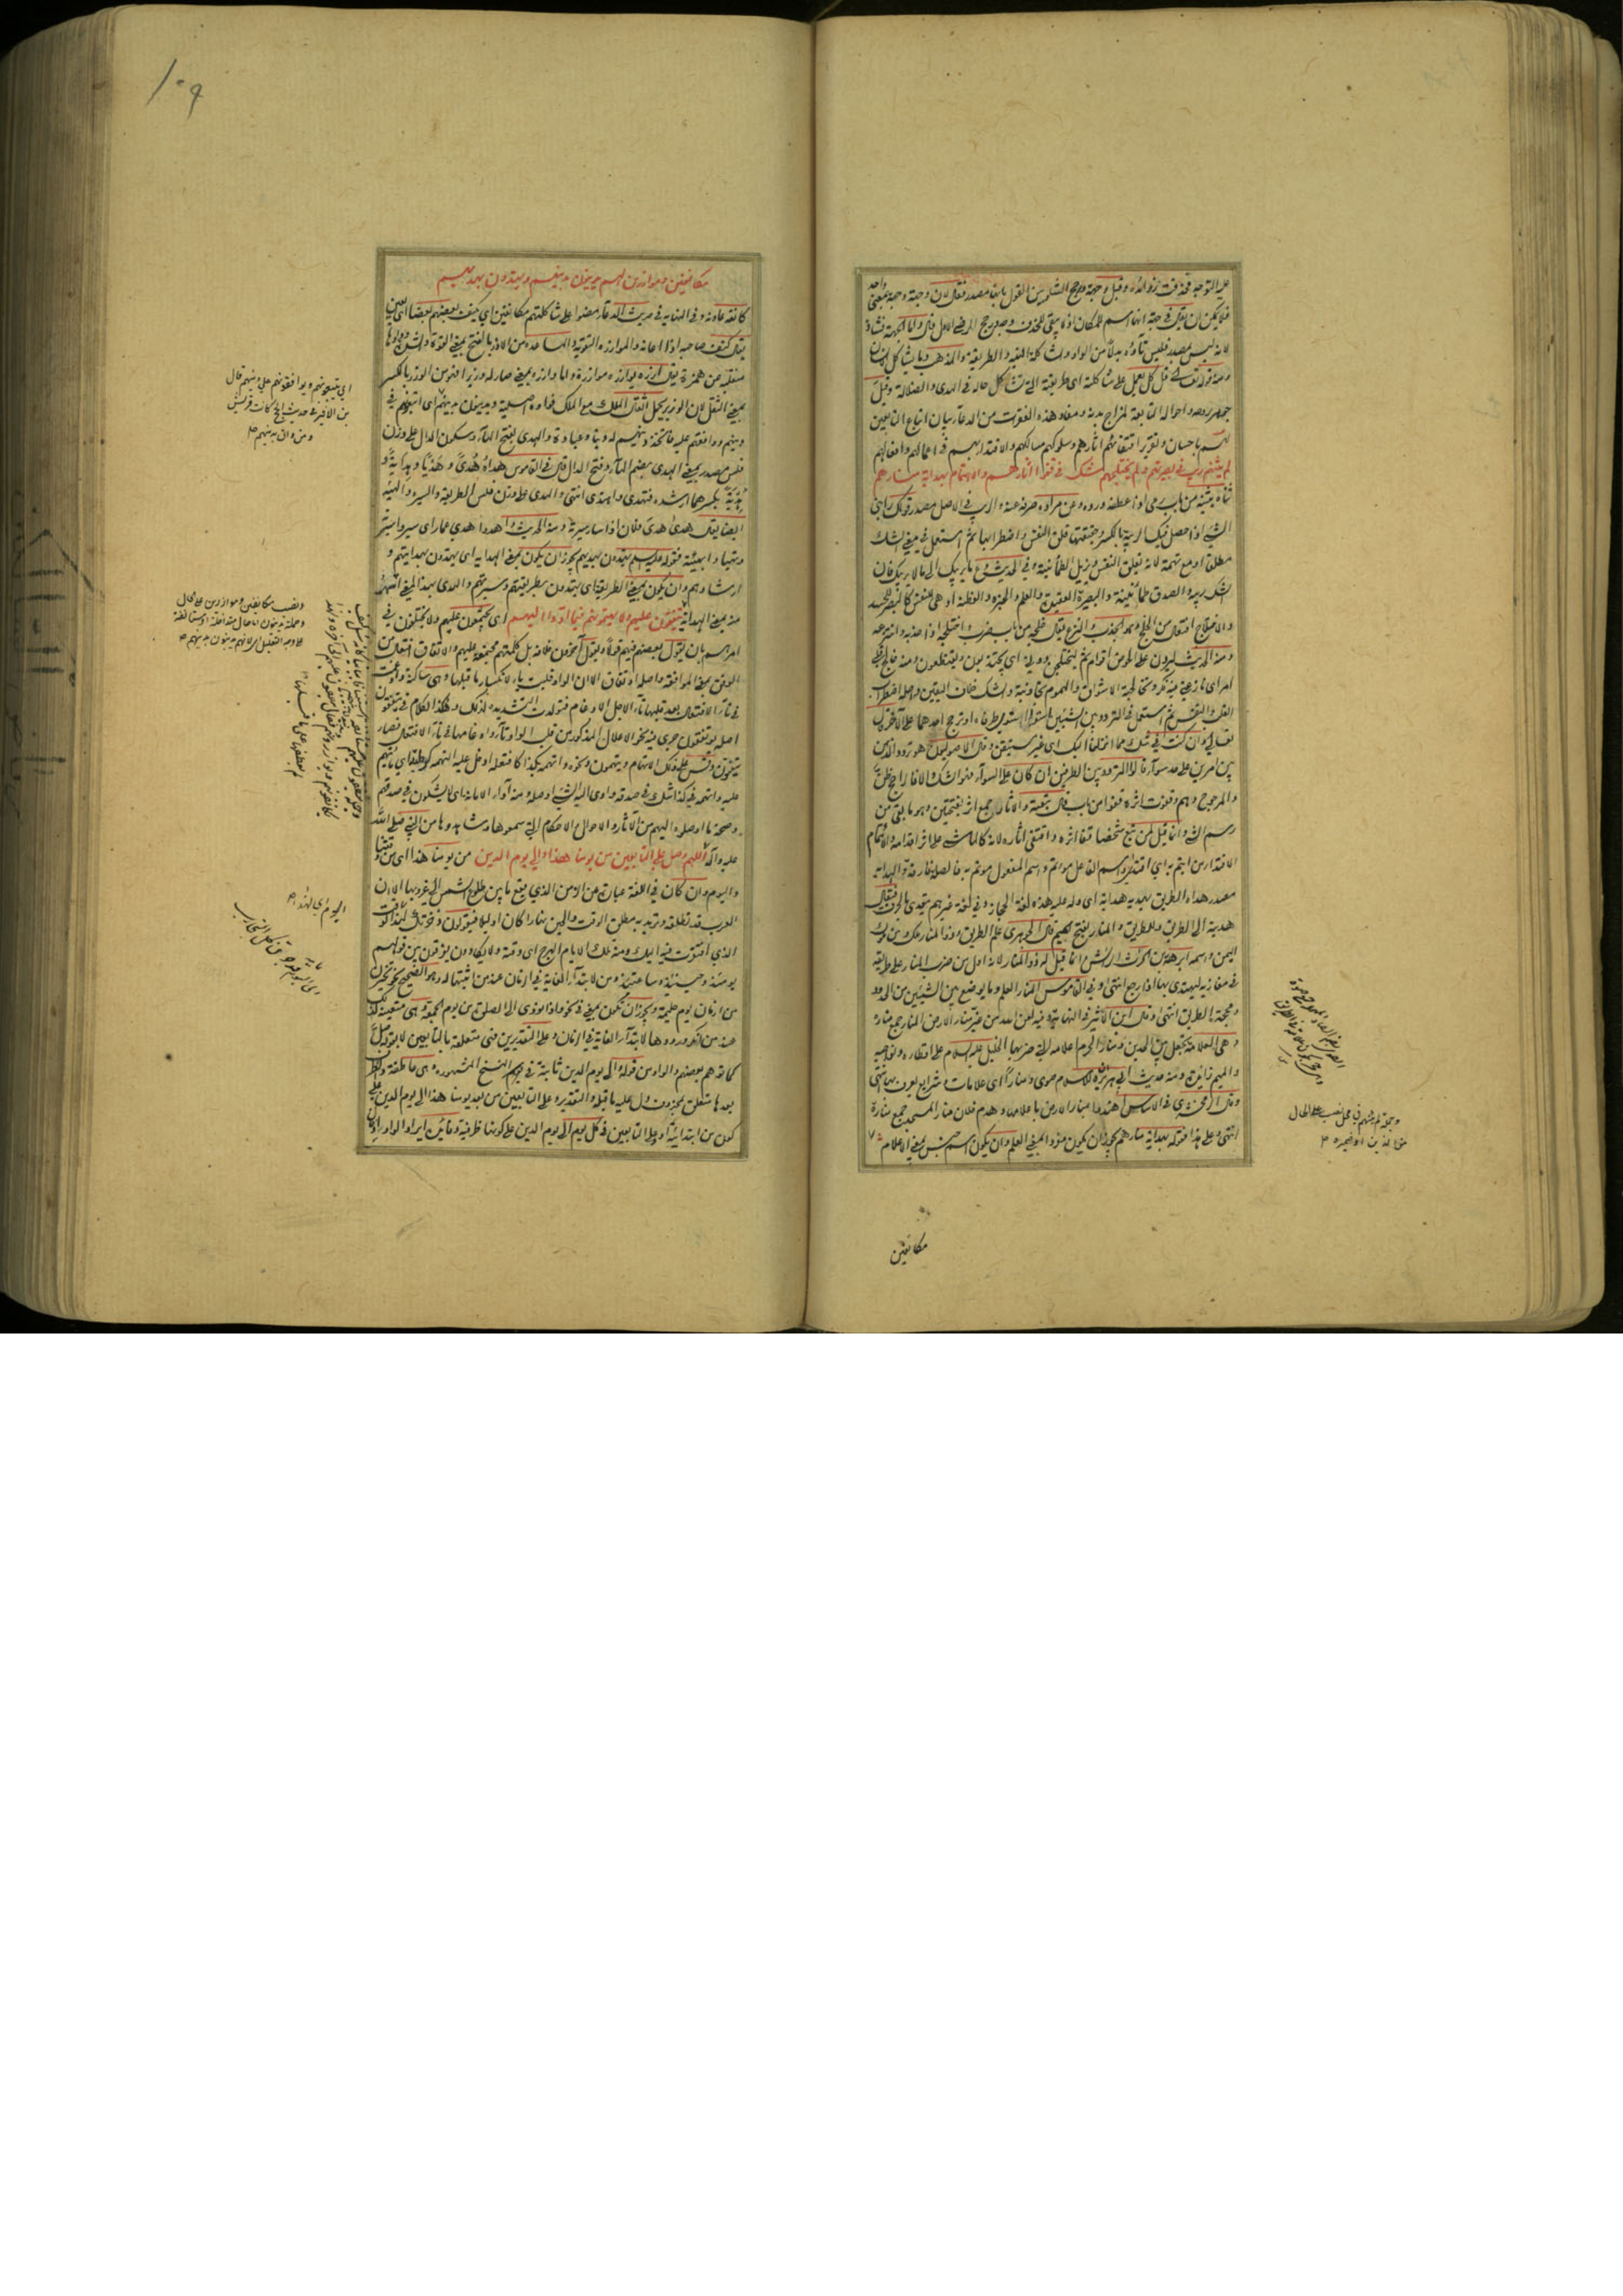 عليه التوجه فحذفت زوائده وقيل وجهة ورجح الشلوبين القول بانها مصدر فقال لان وجهة وجهة بمعنى واحد
فلا يمكن ان يقال في جهة انها اسم للمكان اذ لا يبقى للحذف وجه ورجح المرضي الاول قال واما
لانه ليس بمصدر فليس تاؤه بدلا من الواو والشاكلة الناحية والطريقة والمذهب وما يشاكل الانسان
ومنه قوله تعالى قل كل يعمل على شاكلته اي طريقته التي تشاكل حاله في الهدى والضلالة وقيل
جوهر روحه واحواله التابعة لمزاج بدنه ومفاد هذه الفقرات من الدعاء بيان اتباع التابعين
لهم باحسان وتقرير اقتفائهم آثارهم وسلوكهم مسالكهم والاقتداء بهم في اعمالهم وافعالهم
لم يثنهم ريب في بصيرتهم ولم يختلجهم شك في قفو آثارهم والايتمام بهداية منارهم
ثناه يثنيه من باب رمى اذا عطفه ورده وعن مراده صرفه عنه والريب في الاصل مصدر قولك رابني
الشيء اذا حصل فيك الريبة بالكسر وحقيقتها قلق النفس واضطرابها ثم استعمل في معنى الشك
مطلقا او مع تهمة لانه يقلق النفس ويزيل الطمأنينة وفي الحديث دع ما يريبك الى ما لا يريبك فان
الشك ريبة والصدق طمأنينة والبصيرة العقيدة والعلم والخبرة والفطنة او هي للنفس كالبصر للجسد
والاختلاج افتعال من الخلج وهو الجذب والنزع يقال خلجه من باب ضرب واختلجه اذا جذبه وانتزعه
ومنه الحديث ليردن على الحوض اقوام ثم ليختلجن دوني اي يجتذبون ويقتطعون
تعالى وان كنت في شك مما انزلنا اليك اي غير مستيقن وقال الاصوليون هو تردد الذهن
بين امرين على حد سواء قالوا التردد بين الطرفين ان كان على السواء فهو الشك والا فالراجح ظن
والمرجوح وهم وقفوت اثره قفوا من باب قال تبعته والآثار جمع اثر بفتحتين وهو ما بقي من
رسم الشيء وانما قيل لمن تبع شخصا قفا اثره واقتفى آثاره لانه كالماشي على اثر اقدامه والايتمام
الاقتداء من ايتم به اي اقتدى واسم الفاعل مؤتم واسم المفعول مؤتم به فالصلة فارقة والهداية
مصدر هداه الطريق يهديه هداية اي دله عليه هذه لغة الحجاز وفي لغة غيرهم يتعدى بالحرف فيقال
هديته الى الطريق وللطريق والمنار بفتح الميم قال الجوهري علم الطريق وذو المنار ملك من ملوك
اليمن واسمه ابرهة بن الحرث الرائش وانما قيل له ذو المنار لانه اول من ضرب المنار على طريقه
في مغازيه ليهتدي بها اذا رجع انتهى وفي القاموس المنار العلم وما يوضع بين الشيئين من الحدود
ومحجة الطريق انتهى وقال ابن الاثير في النهاية وفيه لعن الله من غير منار الارض المنار جمع منارة
وهي العلامة تجعل بين الحدين ومنار الحرم اعلامه التي ضربها الخليل عليه السلام على اقطاره ونواحيه
والميم زائدة ومنه حديث ابي هريرة للاسلام صوى ومنارا اي علامات وشرايع يعرف بها انتهى
وقال الزمخشري في الاساس اهتدوا بمنار الارض باعلامها وهدم فلان منار المسجد جمع منارة
انتهى وعلى هذا فقوله بهداية منارهم يجوز ان يكون مفردا بمعنى العلم وان يكون اسم جنس بمعنى الاعلام
وجملة لم يثنهم في محل نصب على الحال
مكانفين
١٠٩
مكانفين وموازرين لهم يدينون بدينهم ويهتدون بهديهم
كانفه عاونه وفي النهاية في حديث الدعاء مضوا على شاكلتهم مكانفين اي يكنف بعضهم بعضا اي يعين
يقال كنف صاحبه اذا اعانه والموازرة التقوية والمساعدة من الازر بالفتح بمعنى القوة والشدة وواوها
منقلبة عن همزة يقال آزره يوازره موازرة واما وازره بمعنى صار له وزيرا فهو من الوزر بالكسر
بمعنى الثقل لان الوزير يحمل اثقال الملك مع الملك فواوه اصلية ويدينون بدينهم اي اتبعوهم في
دينهم ووافقهم عليه فاتخذ دينهم له دينا وعبادة والهدي بفتح الهاء وسكون الدال على وزن
فلس مصدر بمعنى الهدى بضم الهاء وفتح الدال قال في القاموس هداه هدى وهديا وهداية و
هدية بكسرهما ارشده فتهدى واهتدى انتهى والهدي على وزن فلس الطريقة والسيرة والهيئة
ايضا يقال هدى هدي فلان اذا سار سيرته ومنه الحديث واهدوا هدي عمار اي سيروا سيرته
وتهيأوا بهيئته فقوله عليه السلام يهتدون بهديهم يجوز ان يكون بمعنى الهداية اي يهتدون بهدايتهم و
ارشادهم وان يكون بمعنى الطريقة اي يهتدون بطريقتهم وسيرتهم والهدي بهذا المعنى اشهر
منه بمعنى الهداية يتفقون عليهم ولا يتهمونهم فيما ادوا اليهم اي يجتمعون عليهم ولا يختلفون في
امرهم بان يقول بعضهم فيهم قولا ويقول آخرون خلافه بل كلمتهم مجتمعة عليهم والاتفاق افتعال من
الوفق بمعنى الموافقة واصله اوتفاق الا ان الواو قلبت ياء لانكسار ما قبلها وهي ساكنة وادغمت
في تاء الافتعال بعد قلبها تاء لاجل الادغام فتولدت التشديدة لذلك وهكذا الكلام في يتفقون
اصله يوتفقون جرى فيه نحو الاعلال المذكور من قلب الواو تاء وادغامها في تاء الافتعال فصار
يتفقون وقس على ذلك الاتهام ويتهمون ونحوه واتهمه بكذا كافتعله ادخل عليه التهمة
عليه واتهمه في كذا شك في صدقه وادى اليه الشيء اوصله ومنه اداء الامانة اي لا يشكون في صدقهم
وصحة ما اوصلوه اليهم من الآثار والاحوال والاحكام التي سمعوها وشاهدوها من النبي صلى الله
عليه وآله اللهم وصل على التابعين من يومنا هذا والى يوم الدين من يومنا هذا اي من وقتنا
واليوم وان كان في اللغة عبارة عن الزمن الذي يقع ما بين طلوع الشمس الى غروبها الا ان
العرب قد تطلقه وتريد به مطلق الوقت والحين نهارا كان او ليلا فيقولون ذخرتك لهذا اليوم
الذي افتقرت فيه اليك ومنه تلك الايام الهرج اي وقته ولا يكادون يفرقون بين قولهم
يومئذ وحينئذ وساعتئذ ومن لابتداء الغاية في الزمان عند من اثبتها له وهو الصحيح نحو تخيرن
من ازمان يوم حليمة ويجوز ان تكون بمعنى في نحو اذا نودي الى الصلوة من يوم الجمعة وهي متعينة لذلك
عند من انكر ورودها لابتداء الغاية في الزمان وعلى التقديرين فهي متعلقة بالتابعين لا بقوله صل
كما توهم بعضهم والواو من قوله والى يوم الدين ثابتة في جميع النسخ المشهورة وهي عاطفة
بعدها متعلق بمحذوف دل عليه ما قبله والتقدير وعلى التابعين من بعد يومنا هذا الى يوم الدين على
كون من ابتدائية او على التابعين في كل يوم الى يوم الدين على كونها ظرفية وفائدة ايراد الواو
اي يتبعونهم ويوافقونهم على دينهم قال
ابن الاثير في حديث الحج كانت قريش
ومن دان بدينهم
ونصب مكانفين وموازرين على الحال
وجملة يدينون اما حال متداخلة او مستأنفة